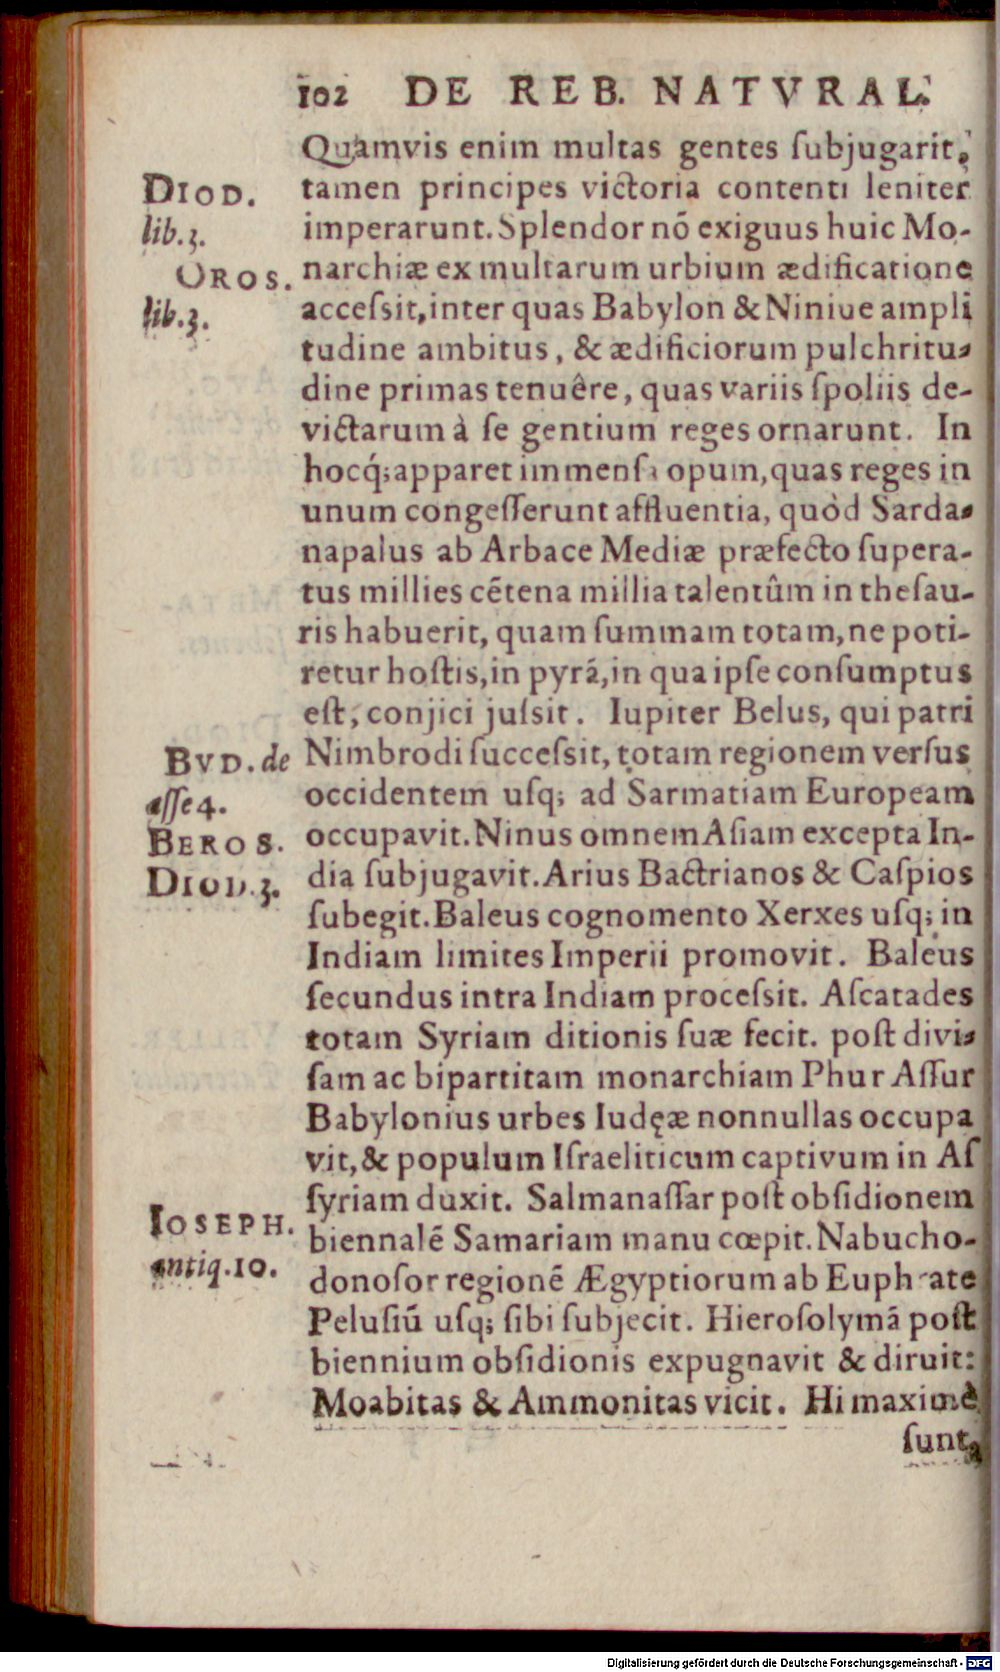 102 DE REB. NATVRAL.
Quamvis enim multas gentes ſubjugarit,
tamen principes victoria contenti leniter
imperarunt. Splendor nō exiguus huic Mo-
narchiæ ex multarum urbium ædificatione
acceſsit, inter quas Babylon & Niniue ampli
tudine ambitus, & ædificiorum pulchritu-
dine primas tenuêre, quas variis ſpoliis de-
victarum à ſe gentium reges ornarunt. In
hocq́; apparet immenſa opum, quas reges in
unum congeſſerunt affluentia, quòd Sarda-
napalus ab Arbace Mediæ præfecto ſupera-
tus millies cētena millia talentûm in theſau-
ris habuerit, quam ſummam totam, ne poti-
retur hoſtis, in pyrā, in qua ipſe conſumptus
eſt, conjici juſsit. Iupiter Belus, qui patri
Nimbrodi ſucceſsit, totam regionem verſus
occidentem uſq; ad Sarmatiam Europeam
occupavit. Ninus omnem Aſiam excepta In-
dia ſubjugavit. Arius Bactrianos & Caſpios
ſubegit. Baleus cognomento Xerxes uſq; in
Indiam limites Imperii promovit. Baleus
ſecundus intra Indiam proceſsit. Aſcatades
totam Syriam ditionis ſuæ fecit. poſt divi-
ſam ac bipartitam monarchiam Phur Aſſur
Babylonius urbes Iudęæ nonnullas occupa
vit, & populum Iſraeliticum captivum in Aſ
ſyriam duxit. Salmanaſſar poſt obſidionem
biennalē Samariam manu cœpit. Nabucho-
donoſor regionē Ægyptiorum ab Euphrate
Peluſiū uſq; ſibi ſubjecit. Hieroſolymā poſt
biennium obſidionis expugnavit & diruit:
Moabitas & Ammonitas vicit. Hi maximè
ſunt
DIOD.
lib.3.
OROS.
lib.3.
BVD. de
aſſe 4.
BEROS.
DIOD.3.
IOSEPH.
antiq.10.
Digitalisierung gefördert durch die Deutsche Forschungsgemeinschaft - DFG